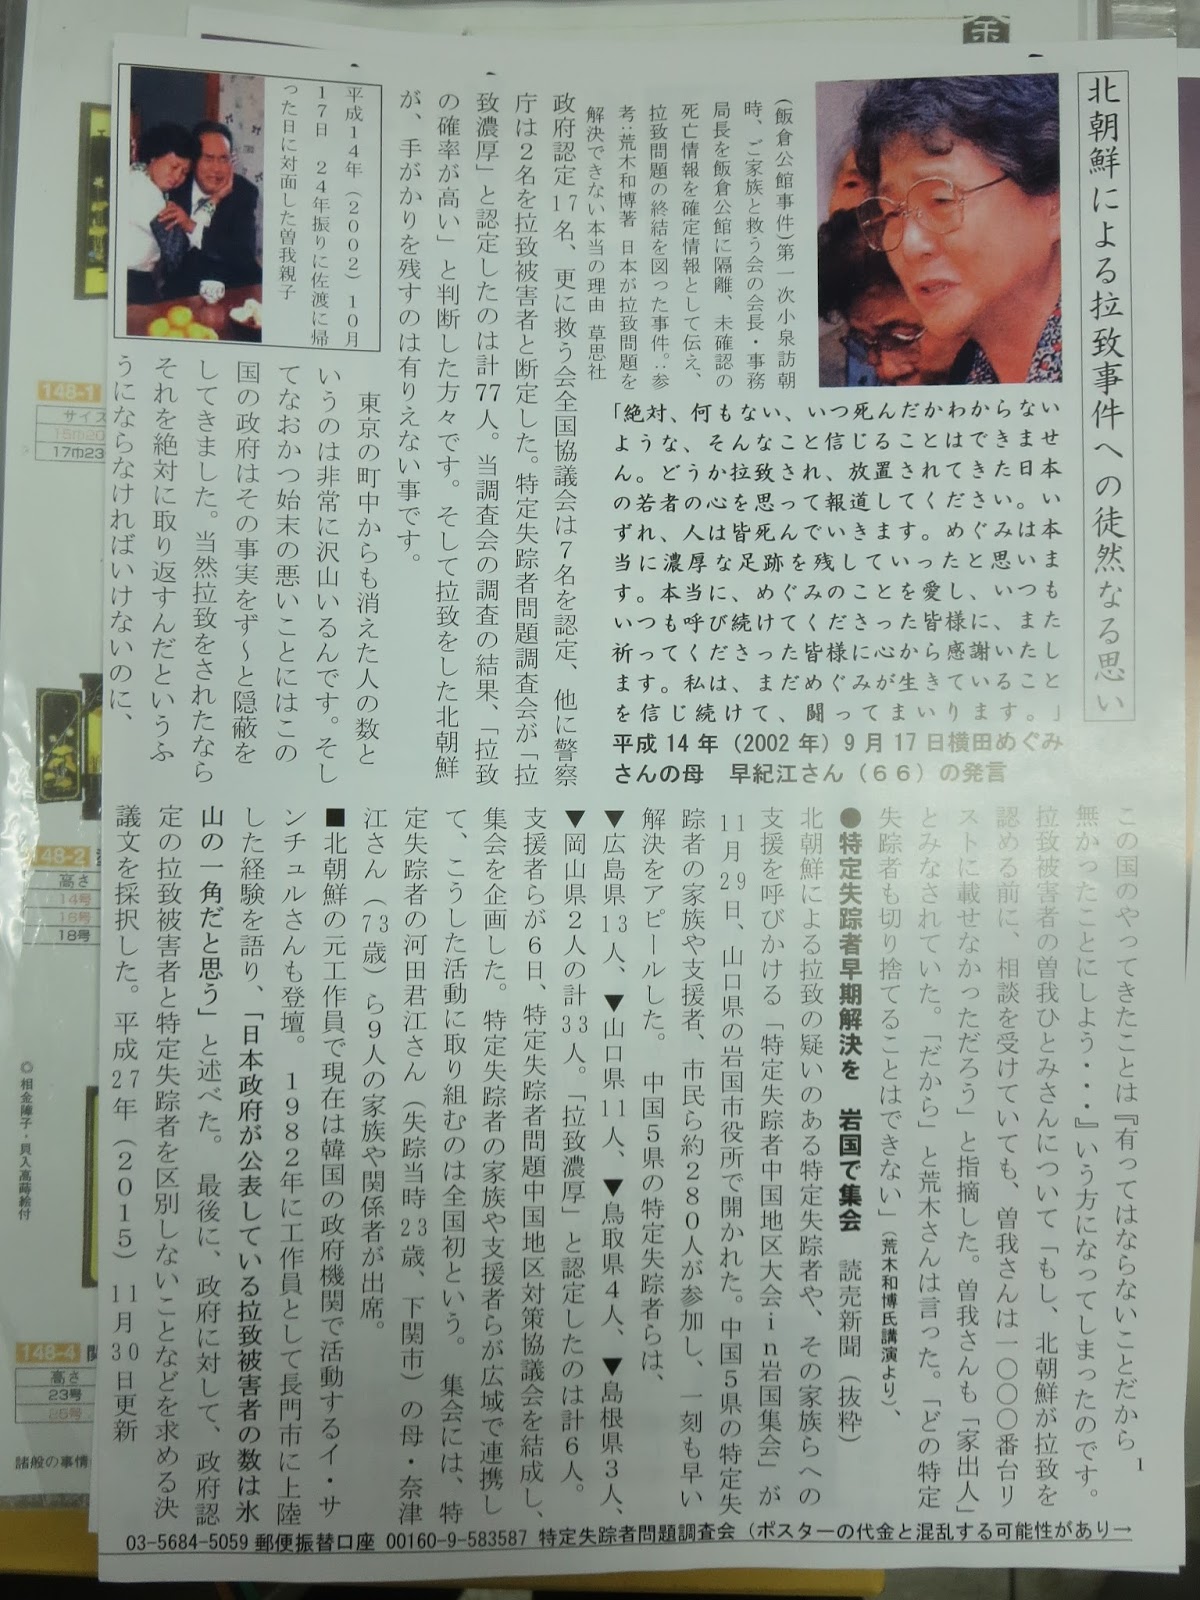 北朝鮮による拉致事件への徒然なる思い
(飯倉公館事件)第一次小泉訪朝
時、ご家族と救う会の会長・事務
局長を飯倉公館に隔離、未確認の
死亡情報を確定情報として伝え、
拉致問題の終結を図った事件。:参
考:荒木和博著 日本が拉致問題を
解決できない本当の理由 草思社
「絶対、何もない、いつ死んだかわからない
ような、そんなこと信じることはできませ
ん。どうか拉致され、放置されてきた日本
の若者の心を思って報道してください。い
ずれ、人は皆死んでいきます。めぐみは本
当に濃厚な足跡を残していったと思いま
す。本当に、めぐみのことを愛し、いつも
いつも呼び続けてくださった皆様に、また
祈ってくださった皆様に心から感謝いたし
ます。私は、まだめぐみが生きていること
を信じ続けて、闘ってまいります。」
平成14年(2002年)9月17日横田めぐみ
さんの母 早紀江さん(66)の発言
政府認定17名、更に救う会全国協議会は7名を認定、他に警察
庁は2名を拉致被害者と断定した。特定失踪者問題調査会が「拉
致濃厚」と認定したのは計77人。当調査会の調査の結果、「拉致
の確率が高い」と判断した方々です。そして拉致をした北朝鮮
が、手がかりを残すのは有りえない事です。
平成14年(2002)10月
17日 24年振りに佐渡に帰
った日に対面した曽我親子
東京の町中からも消えた人の数と
いうのは非常に沢山いるんです。そし
てなおかつ始末の悪いことにはこの
国の政府はその事実をず~と隠蔽を
してきました。当然拉致をされたなら
それを絶対に取り返すんだというふ
うにならなければいけないのに、
この国のやってきたことは『有ってはならないことだから
無かったことにしよう・・・』いう方になってしまったのです。
拉致被害者の曽我ひとみさんについて「もし、北朝鮮が拉致を
認める前に、相談を受けていても、曽我さんは一〇〇〇番台リ
ストに載せなかっただろう」と指摘した。曽我さんも「家出人」
とみなされていた。「だから」と荒木さんは言った。「どの特定
失踪者も切り捨てることはできない」(荒木和博氏講演より)、
●特定失踪者早期解決を 岩国で集会 読売新聞(抜粋)
北朝鮮による拉致の疑いのある特定失踪者や、その家族らへの
支援を呼びかける「特定失踪者中国地区大会in岩国集会」が
11月29日、山口県の岩国市役所で開かれた。中国5県の特定失
踪者の家族や支援者、市民ら約280人が参加し、一刻も早い
解決をアピールした。 中国5県の特定失踪者らは、
▼広島県13人、▼山口県11人、▼鳥取県4人、▼島根県3人、
▼岡山県2人の計33人。「拉致濃厚」と認定したのは計6人。
支援者らが6日、特定失踪者問題中国地区対策協議会を結成し、
集会を企画した。特定失踪者の家族や支援者らが広域で連携し
て、こうした活動に取り組むのは全国初という。 集会には、特
定失踪者の河田君江さん(失踪当時23歳、下関市)の母・奈津
江さん(73歳)ら9人の家族や関係者が出席。
■北朝鮮の元工作員で現在は韓国の政府機関で活動するイ・サ
ンチュルさんも登壇。 1982年に工作員として長門市に上陸
した経験を語り、「日本政府が公表している拉致被害者の数は氷
山の一角だと思う」と述べた。 最後に、政府に対して、政府認
定の拉致被害者と特定失踪者を区別しないことなどを求める決
議文を採択した。平成27年(2015)11月30日更新
1
03-5684-5059 郵便振替口座 00160-9-583587 特定失踪者問題調査会(ポスターの代金と混乱する可能性があり→
148-1
サイズ
15巾20
17巾23
148-2
高さ
14号
16号
18号
148-4
高さ
23号
◎相金障子・貝入高蒔絵付
諸般の事情